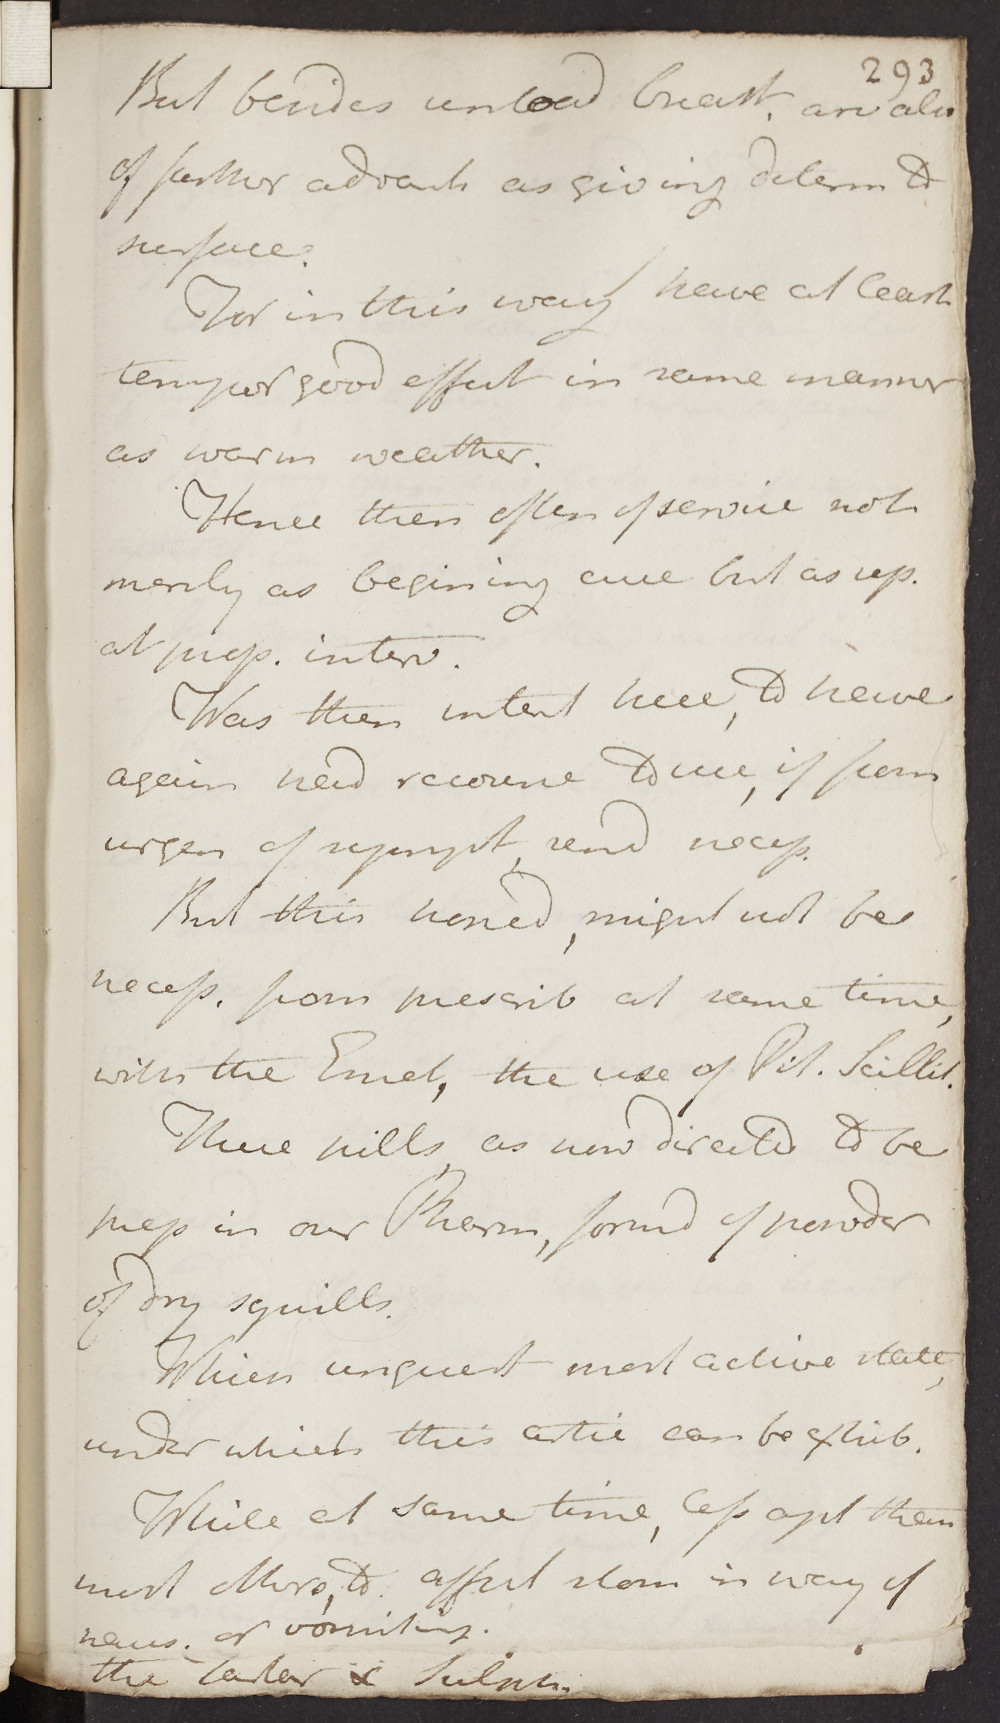 293
But besides unload breast, are also
of further advant as giving determ to
surface.
For in this way have at least
tempor good effect in same manner
as warm weather.
Hence then often of service not
merely as begining cure but as rep.
at prop. interv.
Was then intent here, to have
again had recourse to use, if from
urgen of sympt, rend necess.
But this hoped, might not be
necess. from prescrib at same time,
with the Emet, the use of Pil. Scillit.
These pills, as now directed to be
prep in our Pharm, formd of powder
of dry squills.
Which unquest most active state,
under which this artic can be exhib.
While at same time, less apt than
most others, to affect stom in way of
naus. or vomiting.
the tartar & Sulph.